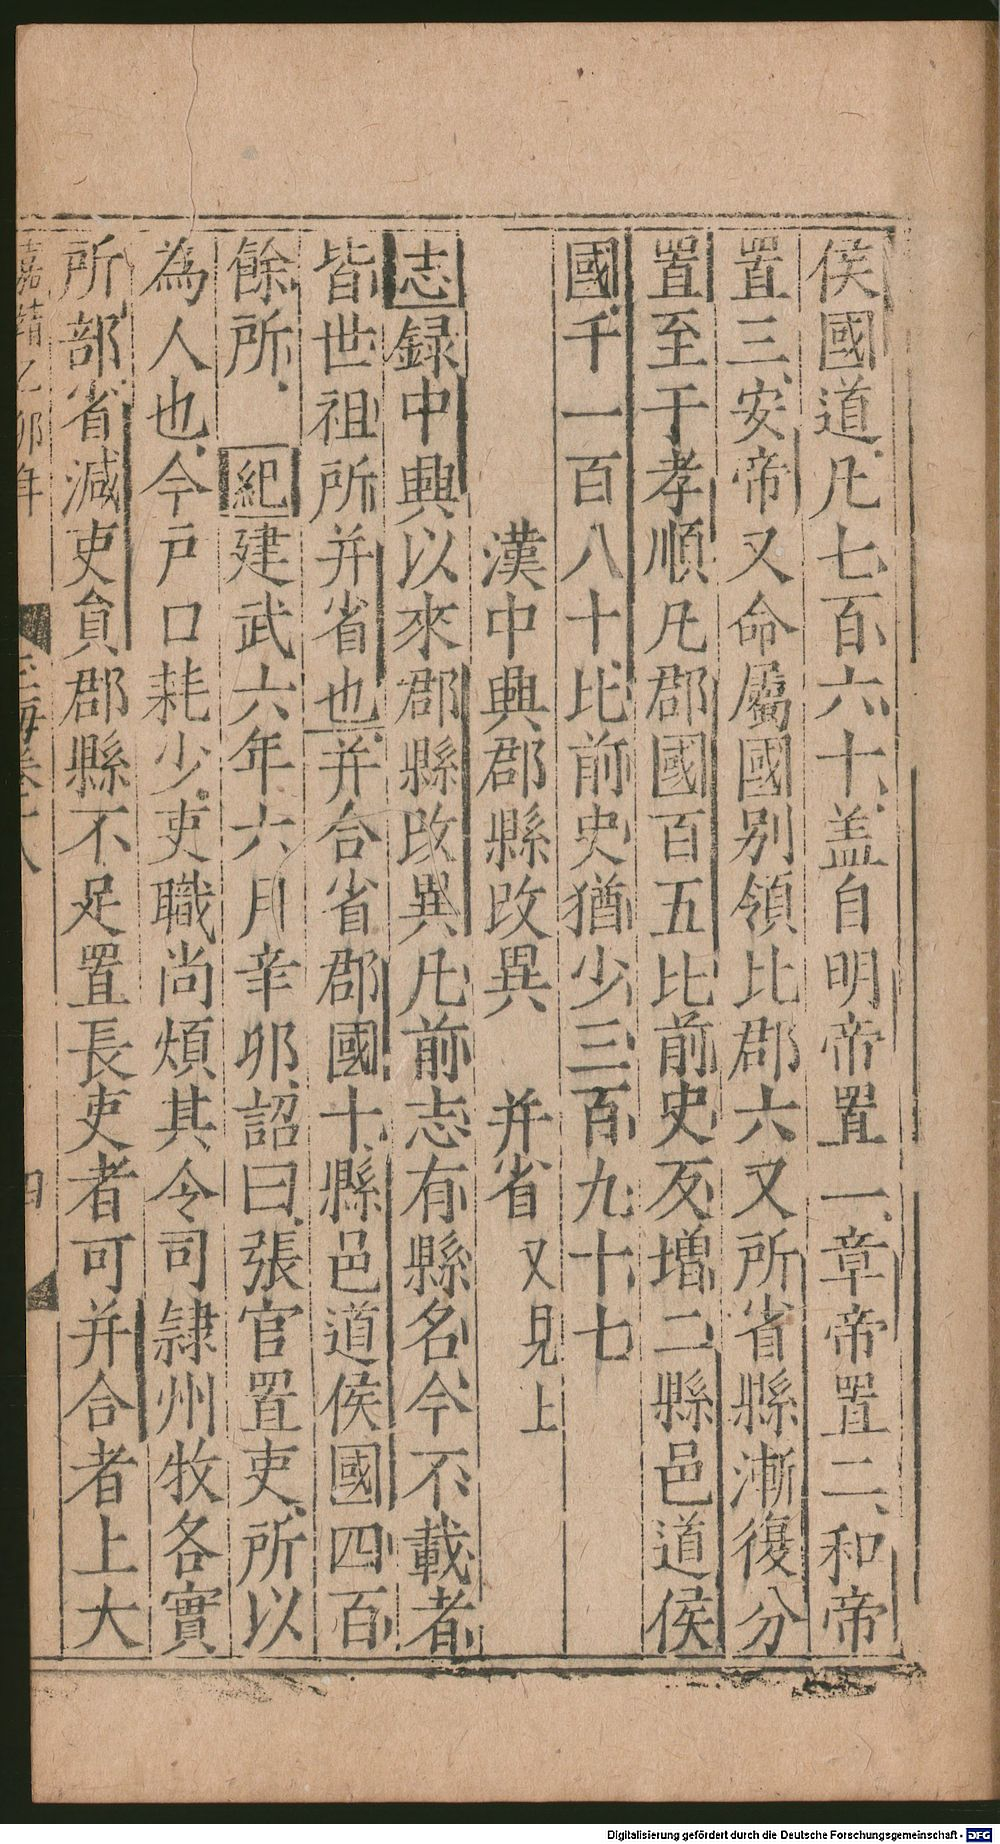 侯國道凡七百六十盖自明帝置一章帝置二和帝
置三安帝又命屬國别領比郡六又所省縣漸復分
置至于孝順凡郡國百五比前史㞋增二縣邑道侯
國千一百八十比前史猶少三百九十七
漢中興郡縣攺異 并省又見上
志録中興以來郡縣攺異凡前志有縣名今不載者
皆世祖所并省也并合省郡國十縣邑道侯國四百
餘所 紀建武六年六月辛卯詔曰張官置吏所以
為人也今戸口耗少吏職尚煩其令司隷州牧各實
所部省減吏貟郡縣不足置長吏者可并合者上大
嘉靖乙卯年 玉海卷十八 四
Digitalisierung gefördert durch die Deutsche Forschungsgemeinschaft - DFG